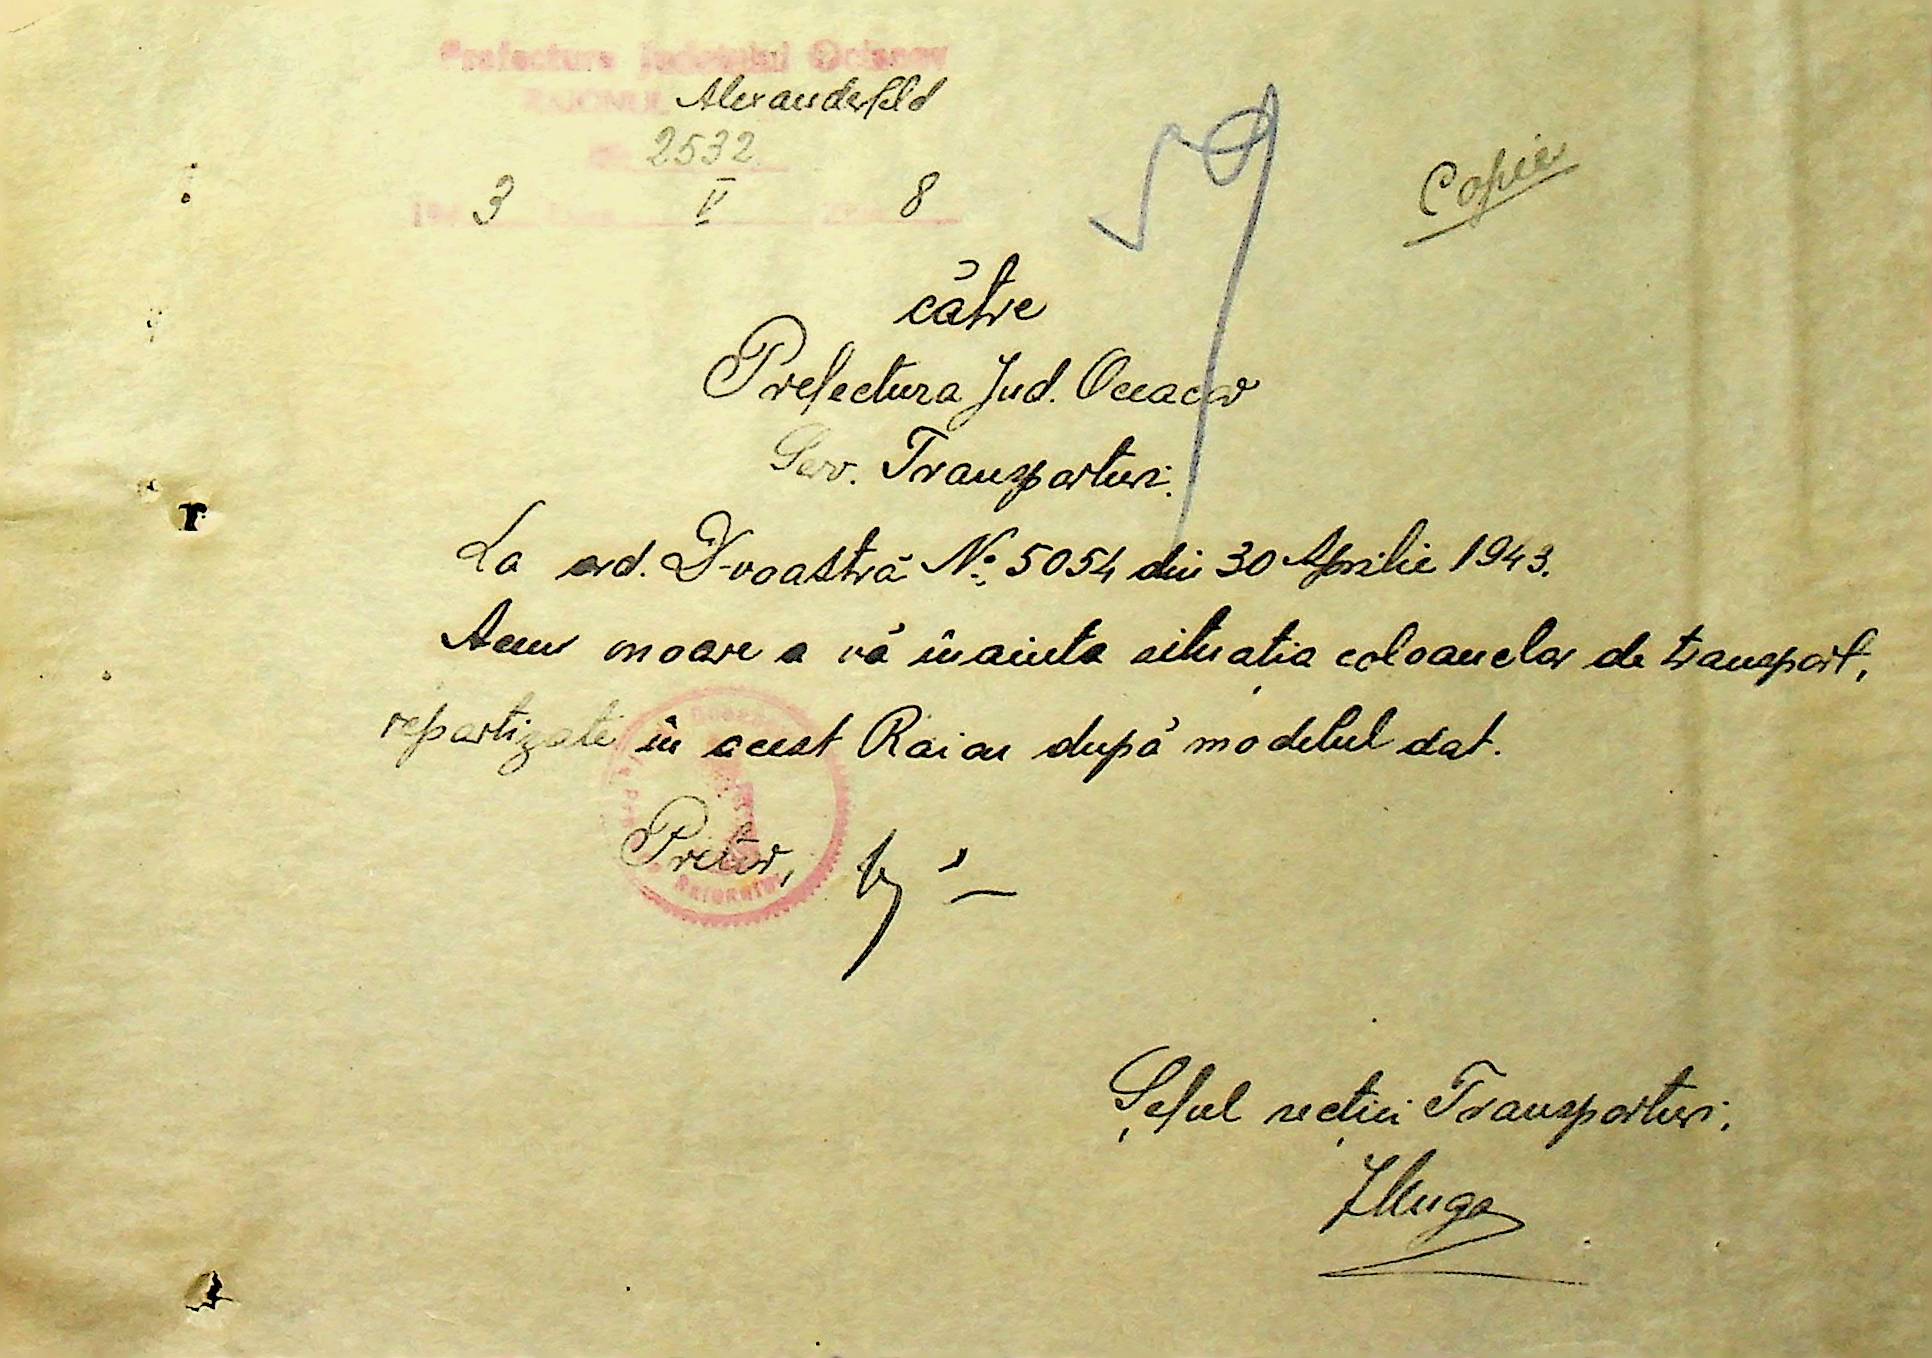 Prefectura Judetului Ociacov
RAIONUL Alexanderfeld
2532
194 3 Luna V Ziua 8
Copie
către
Prefectura Jud. Oceacov
Serv. Transporturi.
La ord. D-voastră No. 5054 din 30 Aprilie 1943.
Avem onoare a vă înainta situația coloanelor de transport,
repartizate în acest Raion după modelul dat.
Pretor,
Șeful secției Transporturi,